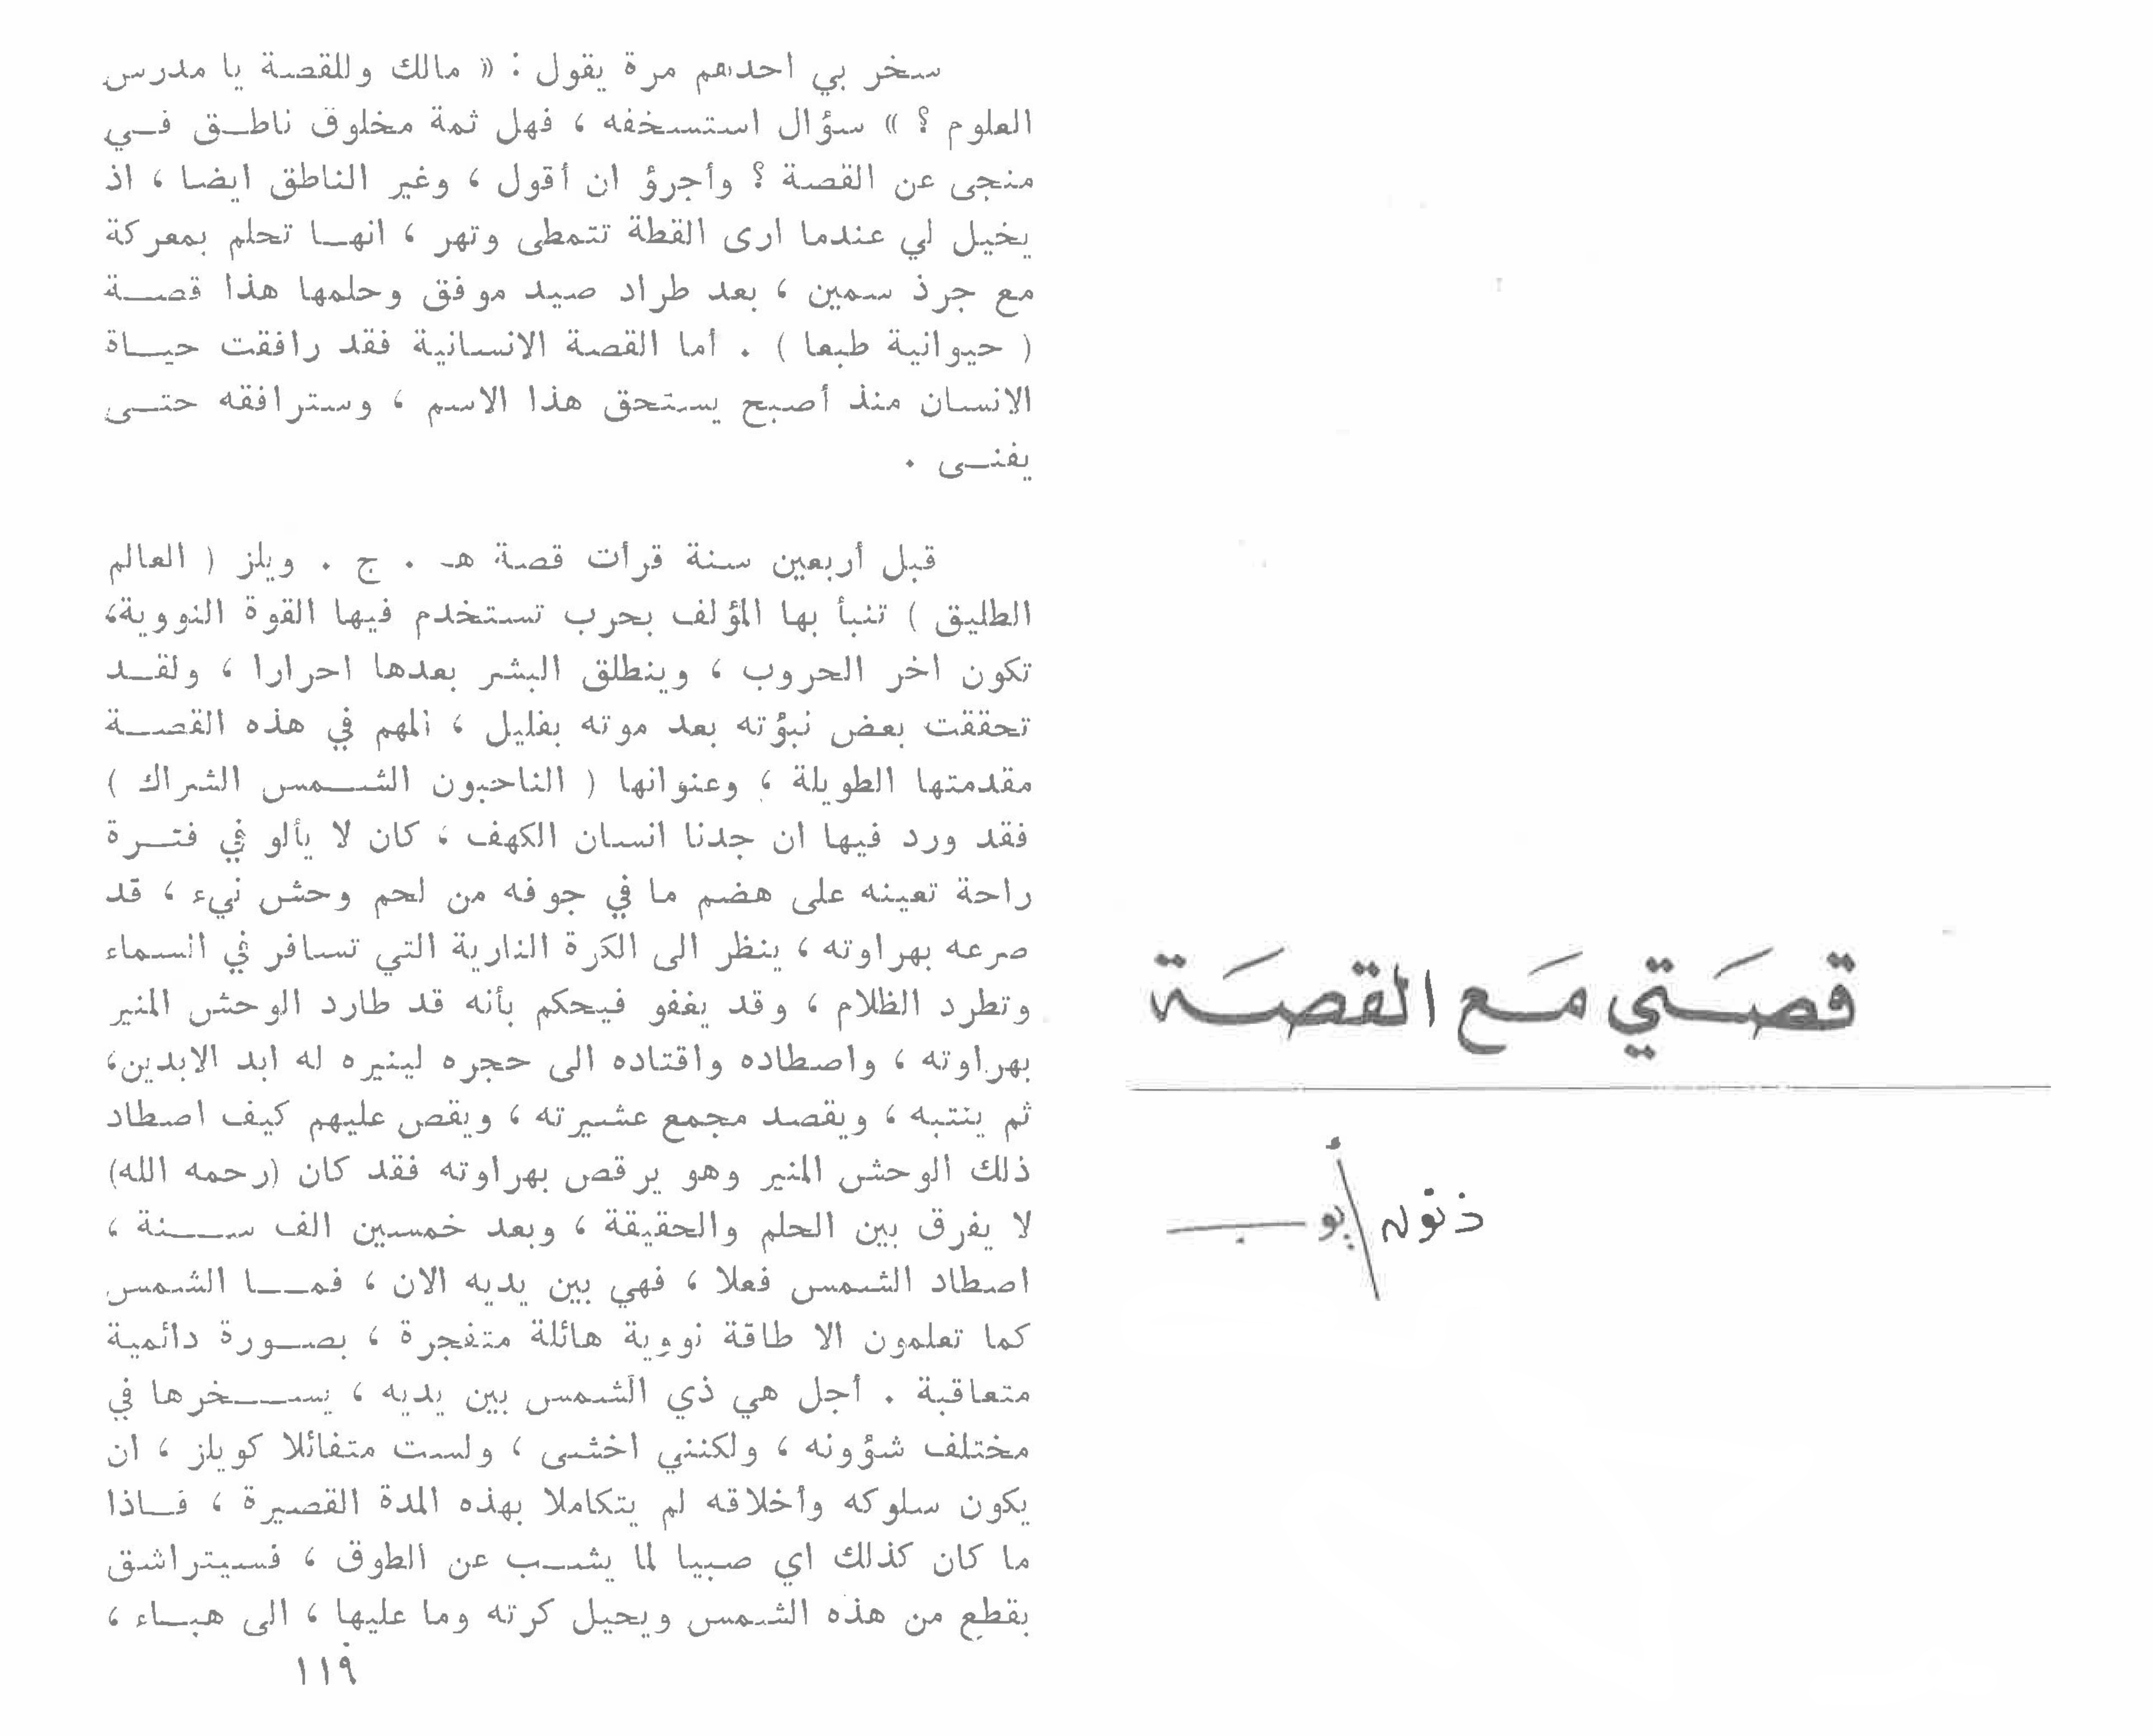 قصتي مع القصة
ذنون أيوب
سخر بي احدهم مرة يقول : « مالك وللقصة يا مدرس
العلوم ؟ » سؤال استسخفه ، فهل ثمة مخلوق ناطق في
منجى عن القصة ؟ وأجرؤ ان أقول ، وغير الناطق ايضا ، اذ
يخيل لي عندما ارى القطة تتمطى وتهر ، انها تحلم بمعركة
مع جرذ سمين ، بعد طراد صيد موفق وحلمها هذا قصة
( حيوانية طبعا ) . أما القصة الانسانية فقد رافقت حياة
الانسان منذ أصبح يستحق هذا الاسم ، وسترافقه حتى
يفنى .
قبل أربعين سنة قرأت قصة هـ . ج . ويلز ( العالم
الطليق ) تنبأ بها المؤلف بحرب تستخدم فيها القوة النووية،
تكون اخر الحروب ، وينطلق البشر بعدها احرارا ، ولقد
تحققت بعض نبؤته بعد موته بقليل ، المهم في هذه القصة
مقدمتها الطويلة ، وعنوانها ( الناحبون الشمس الشراك )
فقد ورد فيها ان جدنا انسان الكهف ، كان لا يألو في فترة
راحة تعينه على هضم ما في جوفه من لحم وحش نيء ، قد
صرعه بهراوته ، ينظر الى الكرة النارية التي تسافر في السماء
وتطرد الظلام ، وقد يغفو فيحكم بأنه قد طارد الوحش المنير
بهراوته ، واصطاده واقتاده الى حجره لينيره له ابد الابدين،
ثم ينتبه ، ويقصد مجمع عشيرته ، ويقص عليهم كيف اصطاد
ذلك الوحش المنير وهو يرقص بهراوته فقد كان (رحمه الله)
لا يفرق بين الحلم والحقيقة ، وبعد خمسين الف سنة ،
اصطاد الشمس فعلا ، فهي بين يديه الان ، فما الشمس
كما تعلمون الا طاقة نووية هائلة متفجرة ، بصورة دائمية
متعاقبة . أجل هي ذي الشمس بين يديه ، يسخرها في
مختلف شؤونه ، ولكنني اخشى ، ولست متفائلا كويلز ، ان
يكون سلوكه وأخلاقه لم يتكاملا بهذه المدة القصيرة ، فاذا
ما كان كذلك اي صبيا لما يشب عن الطوق ، فسيتراشق
بقطع من هذه الشمس ويحيل كرته وما عليها ، الى هباء ،
١١٩